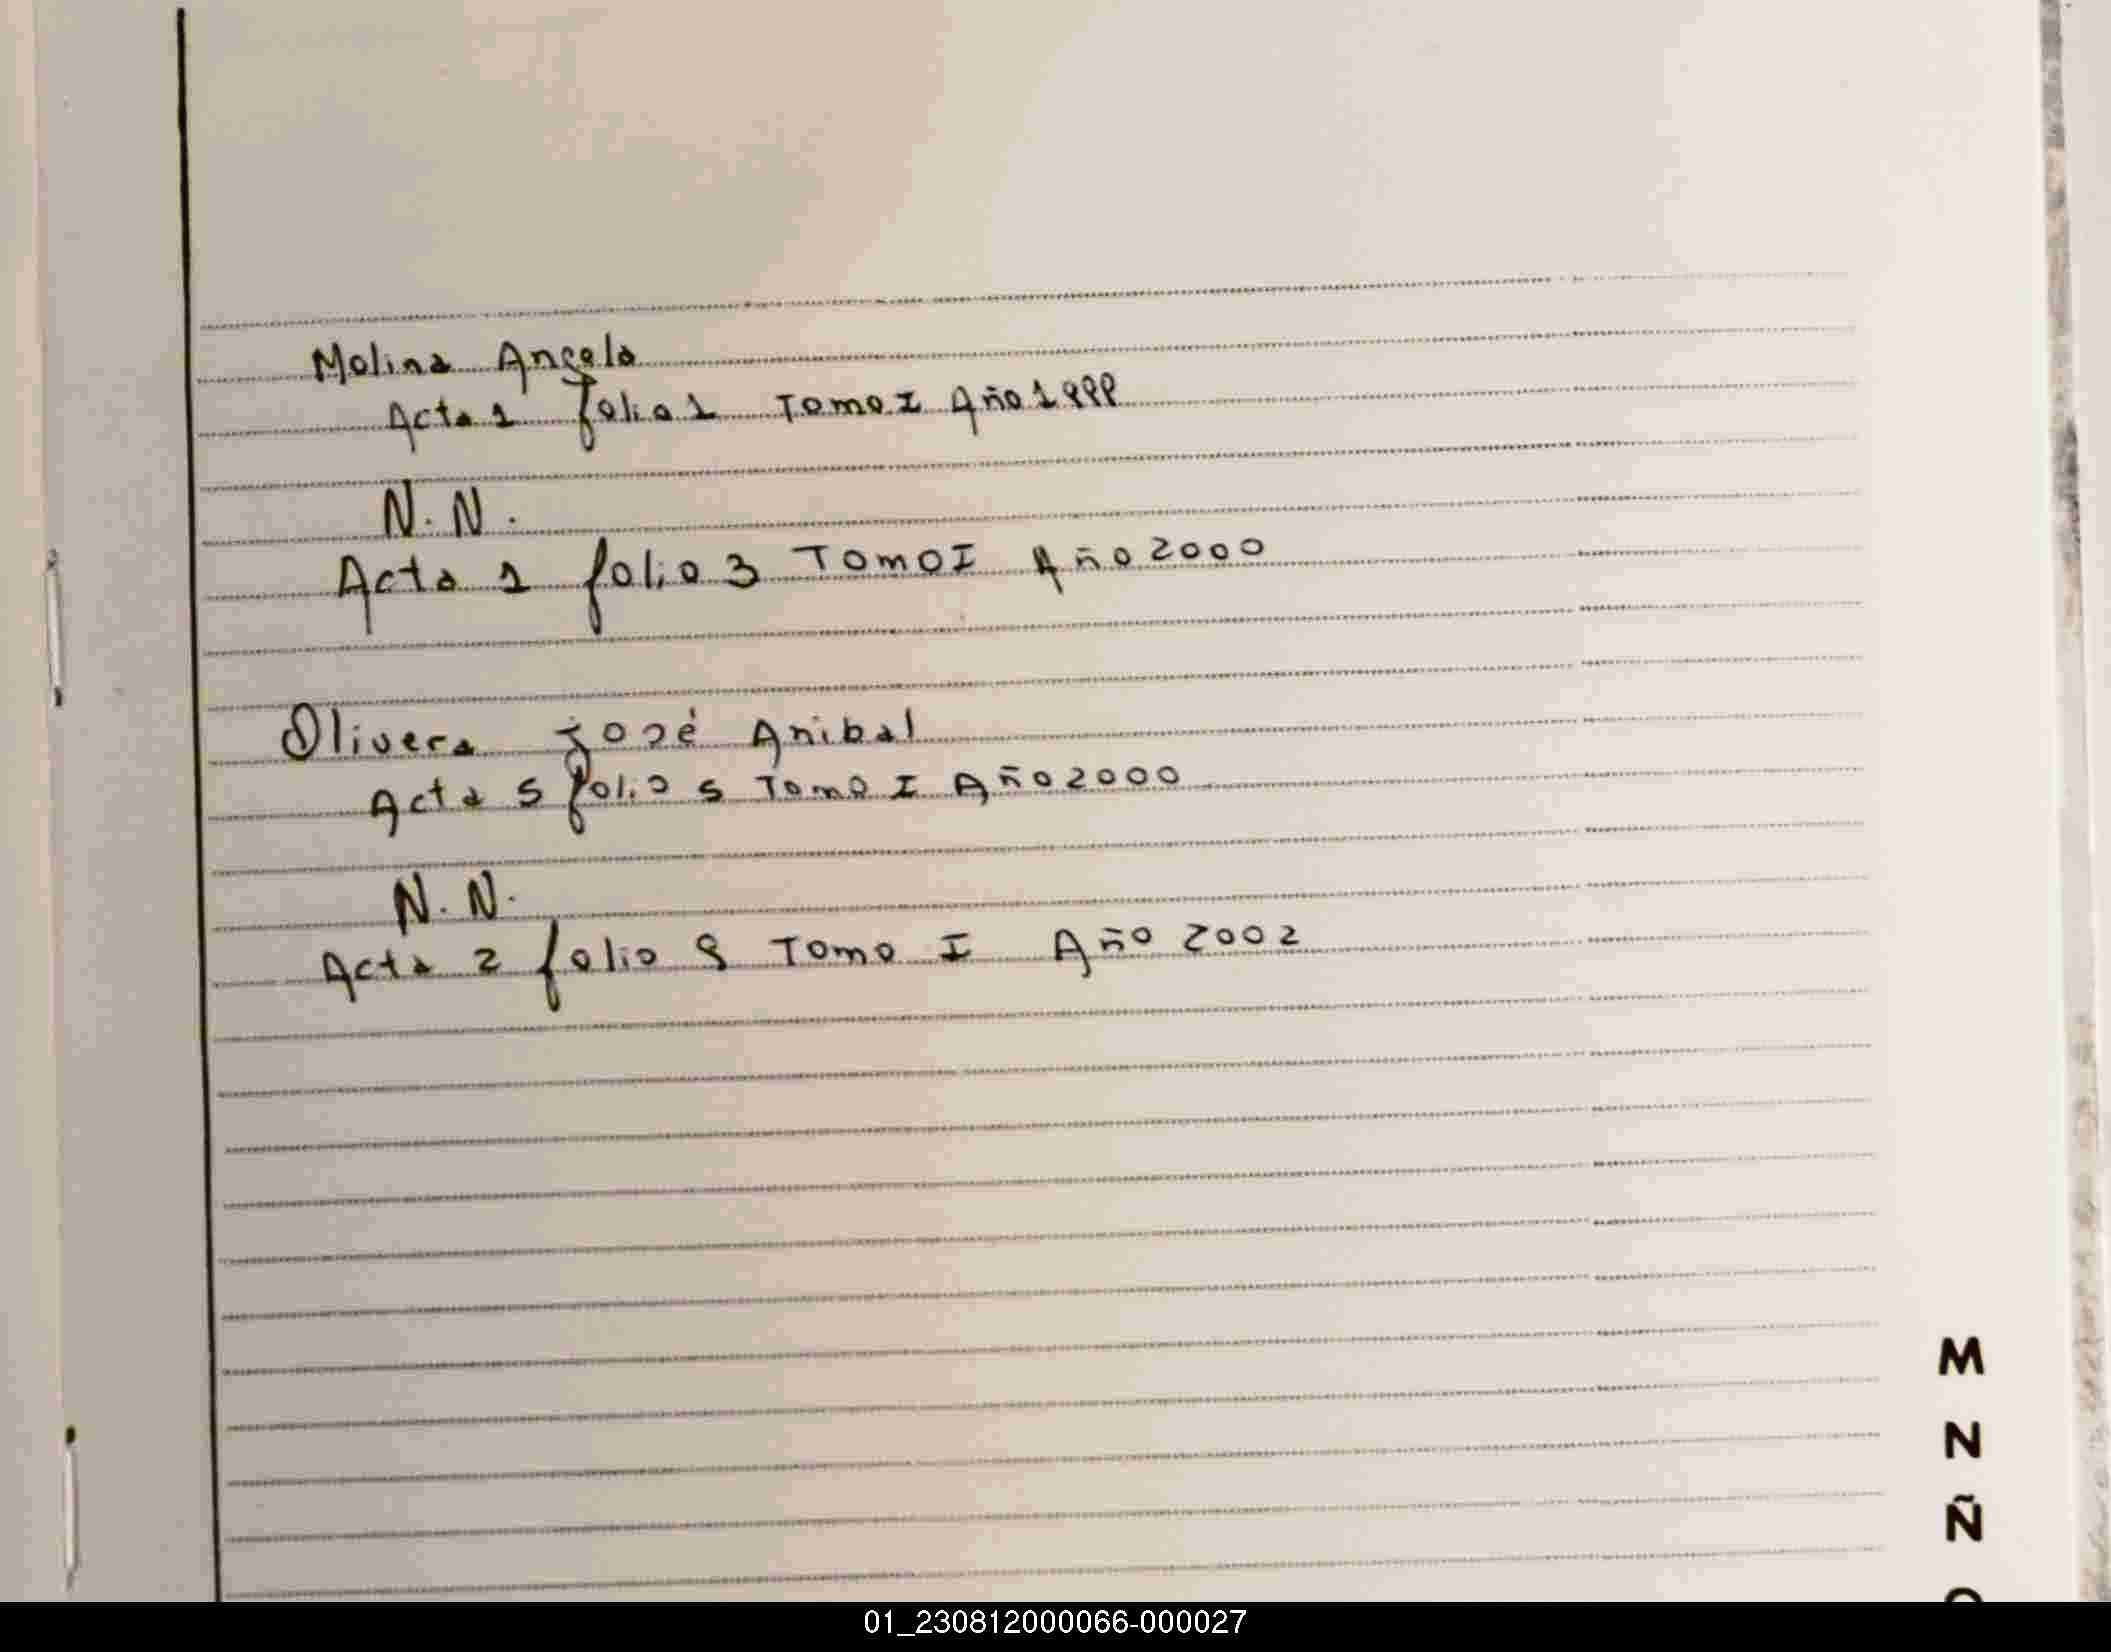 Molina Angela
Acta 1 folio 1 Tomo I Año 1999
N. N.
Acta 1 folio 3 Tomo I Año 2000
Olivera José Anibal
Acta 5 folio 5 Tomo I Año 2000
N. N.
Acta 2 folio 9 Tomo I Año 2002
M
N
Ñ
01_230812000066-000027